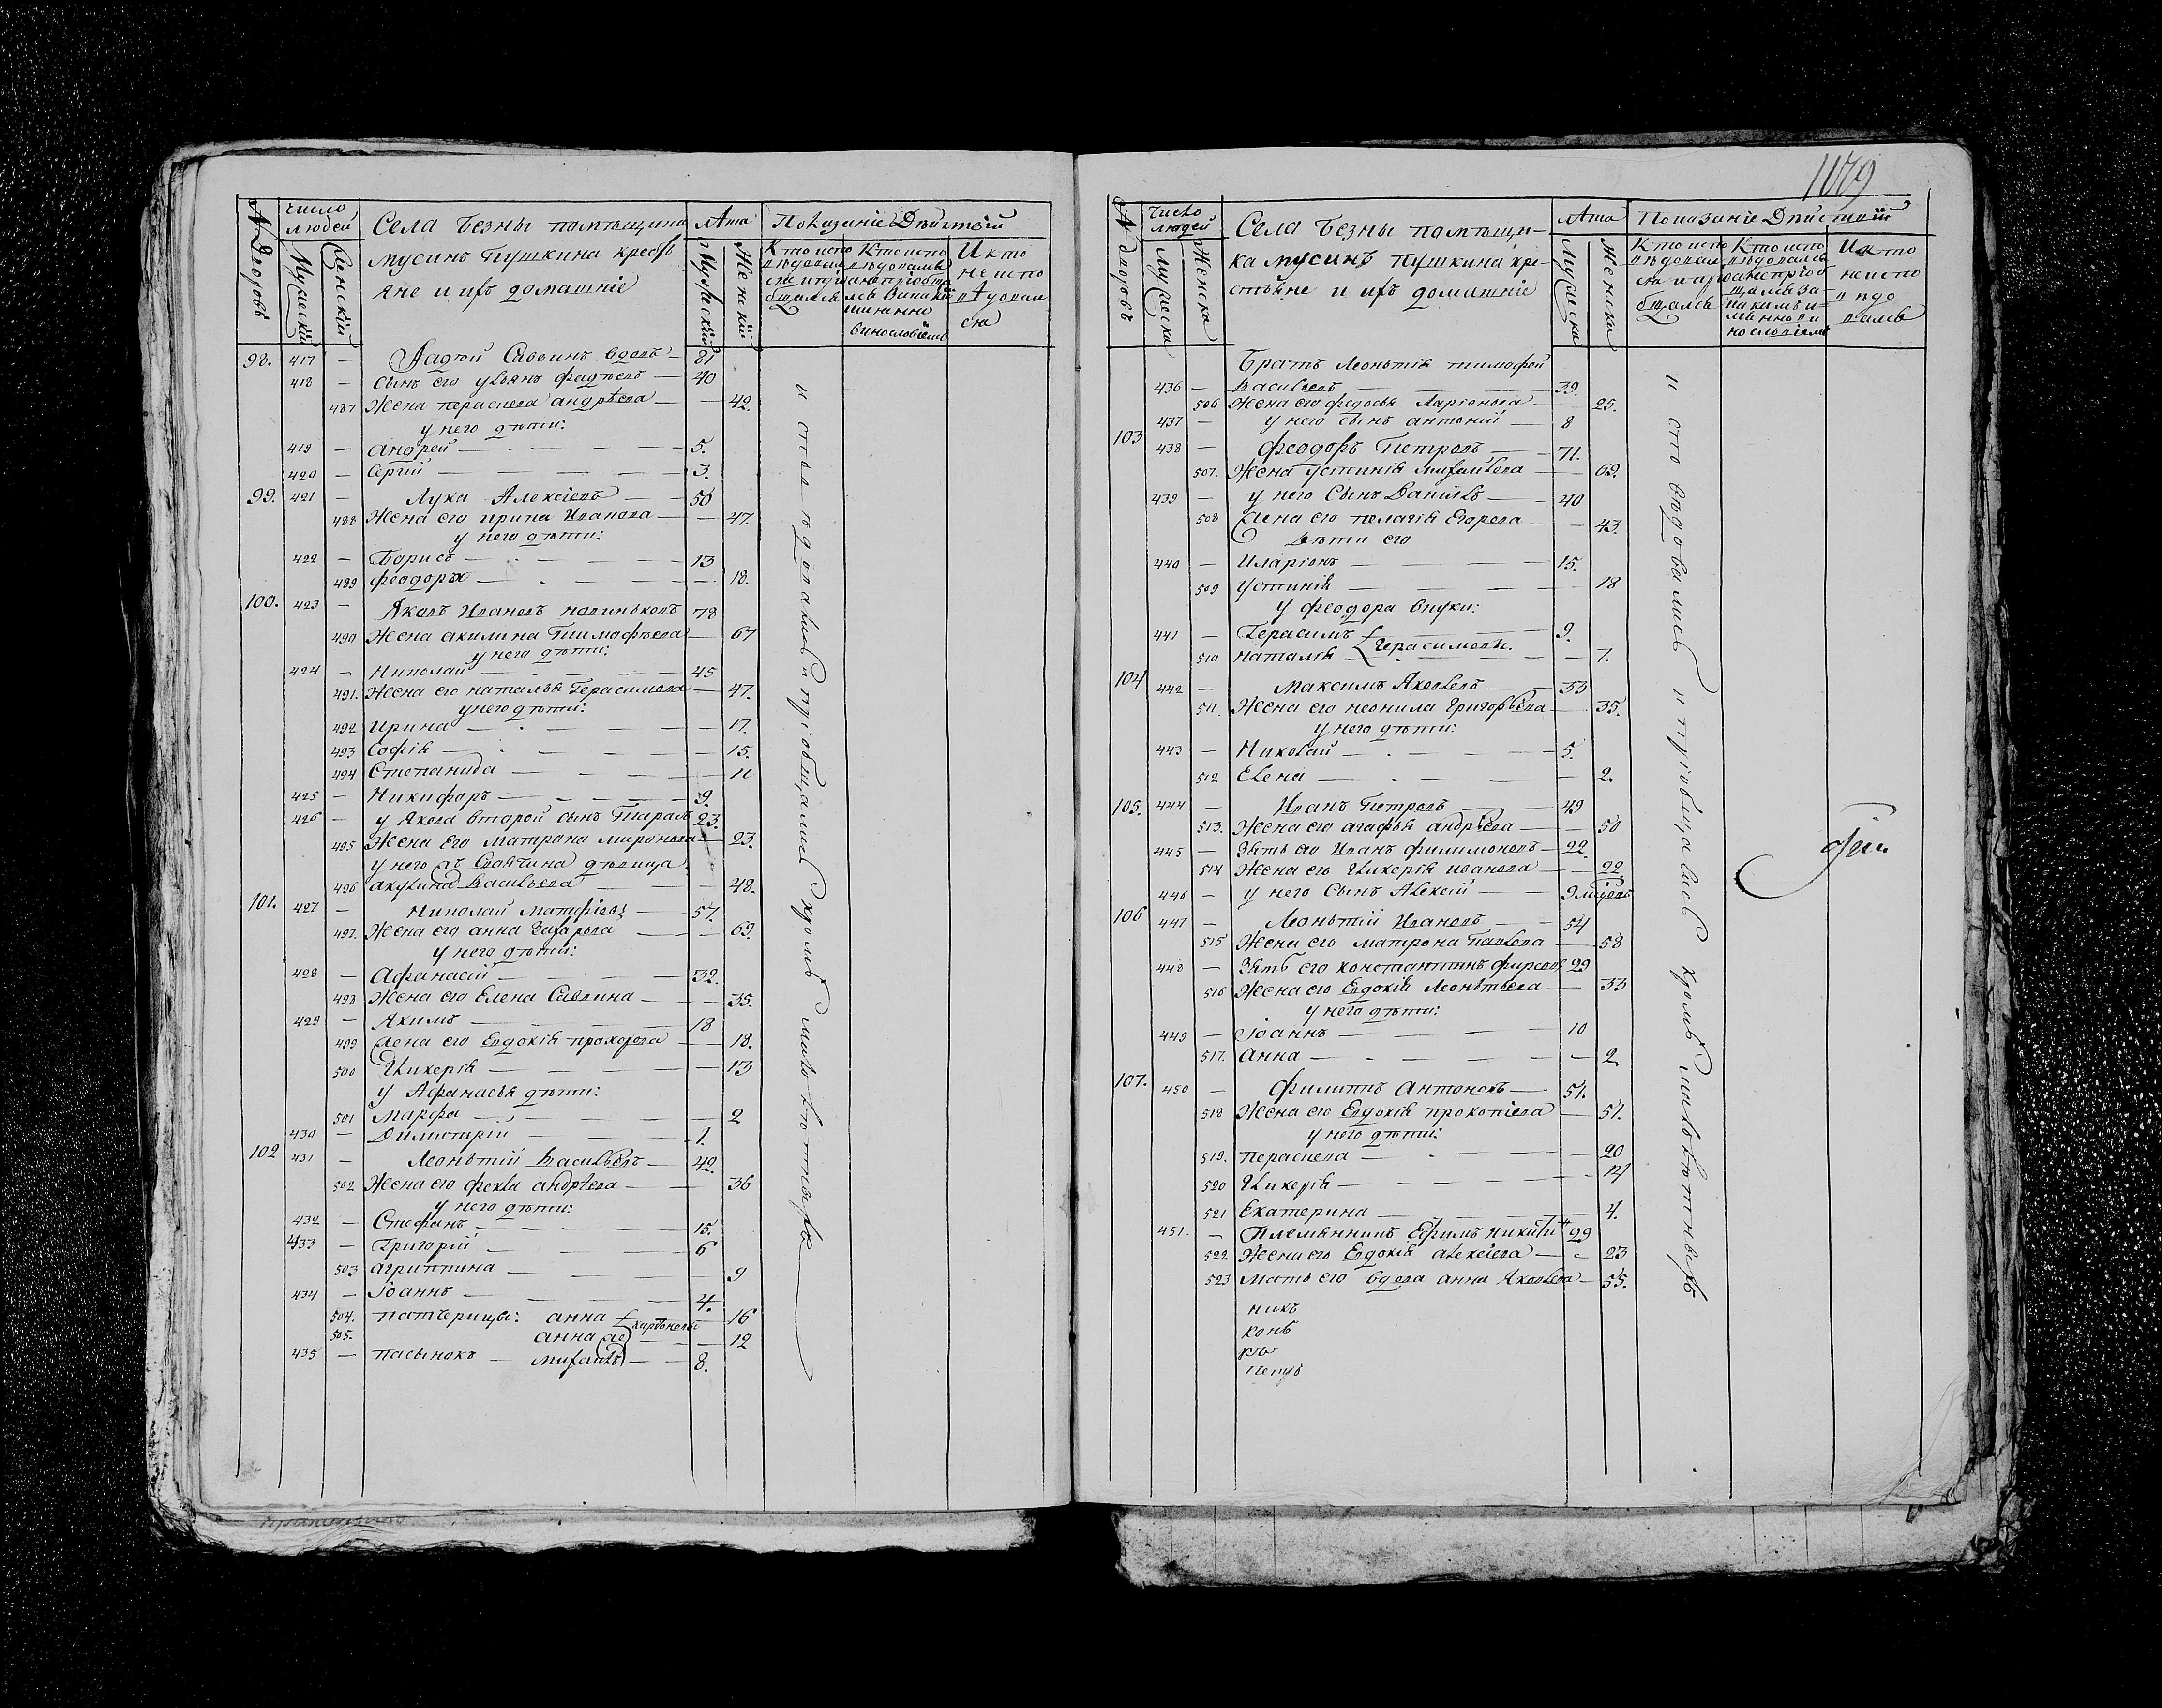 № Дворовъ
число людей
Мужескій
Женскій
Села Безны помѣщика
мусинъ Пушкина крестья
яне и ихъ домашніе
Лѣта
Мужескій
Женскій
Показаніе Действій
И кто
не испо
вѣдовал
ся
98. 417 — Фадѣй Саввинъ вдовъ — 81
418 — сынъ его ульянъ фадѣевъ — 40
487 Жена параскева андрѣева — 42.
у него дѣти:
419 — андрей — 5.
420 — Сергій — 3.
99. 421 — Лука Алексіевъ — 50
488 Жена его ирина Иванова — 47.
у него дѣти:
422 — Борисъ — 13
489 феодора — 18.
100. 423 — Яковъ Ивановъ 78
490 Жена акилина Тимофѣева — 67
у него дѣти:
424 — Николай — 45
491. Жена его наталья Герасимова — 47.
у него дѣти:
492 Ирина — 17.
493 Софія — 15.
494 Степанида — 11
425 — Никифоръ — 9.
426 — у Якова второй сынъ Тарасъ 23.
495 Жена его Матрона миронова — 23.
у него дѣвица
496 акулина Васильева — 48.
101. 427 — Николай Матфіевъ — 57.
497. Жена его анна Захарова — 69.
у него дѣти:
428 — Афанасій — 32.
498 Жена его Елена Саввина — 35.
429 — Якимъ — 18
499 Жена его Евдокія прохорова — 18.
500 Гликерія — 13
у Афанасья дѣти:
501 Марфа — 2
430 — Димитрій — 1.
102 431 — Леонтій Васильевъ — 42.
502 Жена его фекла андрѣева — 36
у него дѣти:
432 — Стефанъ — 15.
433 — Григорій — 6
503 агриппина — 9
434 — Іоаннъ — 4.
504. патчерицы: анна — 16
505. анна — 12
435 — пасынокъ — михаилъ — 8.
исповѣдовались и пріобщались кромѣ малолѣтныхъ
1179
№ дворовъ
число людей
Мужеска
Женска
Села Безны помѣщи-
ка мусинъ Пушкина кре-
стьяне и ихъ домашніе
Лѣта
Мужеска
Женска
Показаніе Действій
И кто
не испо
вѣдо
вался
Братъ Леонтія тимофей
436 — Васильевъ — 39.
506 Жена его федосья Ларіонова — 25.
437 — у него сынъ антоній — 8
103 438 — феодоръ Петровъ — 71.
507. Жена Устинія михайлова — 69.
439 — у него Сынъ Данилъ — 40
508 Жена его пелагія Егорова — 43.
Дѣти его
440 — Иларіонъ — 15.
509 Устинія — 18
у феодора внуки:
441 — Герасимъ — 9.
герасимовы.
510 наталья — 7.
104 442 — Максимъ Яковлевъ — 33
511. Жена его неонила григорьева — 35.
у него дѣти:
443 — Николай — 5.
512 Елена — 2.
105. 444 — Иванъ Петровъ — 49
513. Жена его агафья андрѣева — 50
445 — Зять его Иванъ филимоновъ — 22.
514 Жена его Гликерія иванова — 22
446 — у него Сынъ Алексѣй — 9 мѣсяцевъ
106 447 — Леонтій Ивановъ — 54
515 Жена его матрона Павлова — 58
448 — Зять его константинъ фирсовъ 29
516 Жена его Евдокія Леонтьева — 33
у него дѣти:
449 — Іоаннъ — 10
517. анна — 2
107. 450 — филиппъ антоновъ — 51.
518 Жена его Евдокія прокопіева — 51.
у него дѣти:
519. параскева — 20
520 Гликерія — 14
521 Екатерина — 4.
451. — Племянникъ Ефимъ никити 29
522 Жена его Евдокія алексіева — 23
523 Мать его вдова анна Яковлева — 55.
исповѣдовались и пріобщались кромѣ малолѣтныхъ